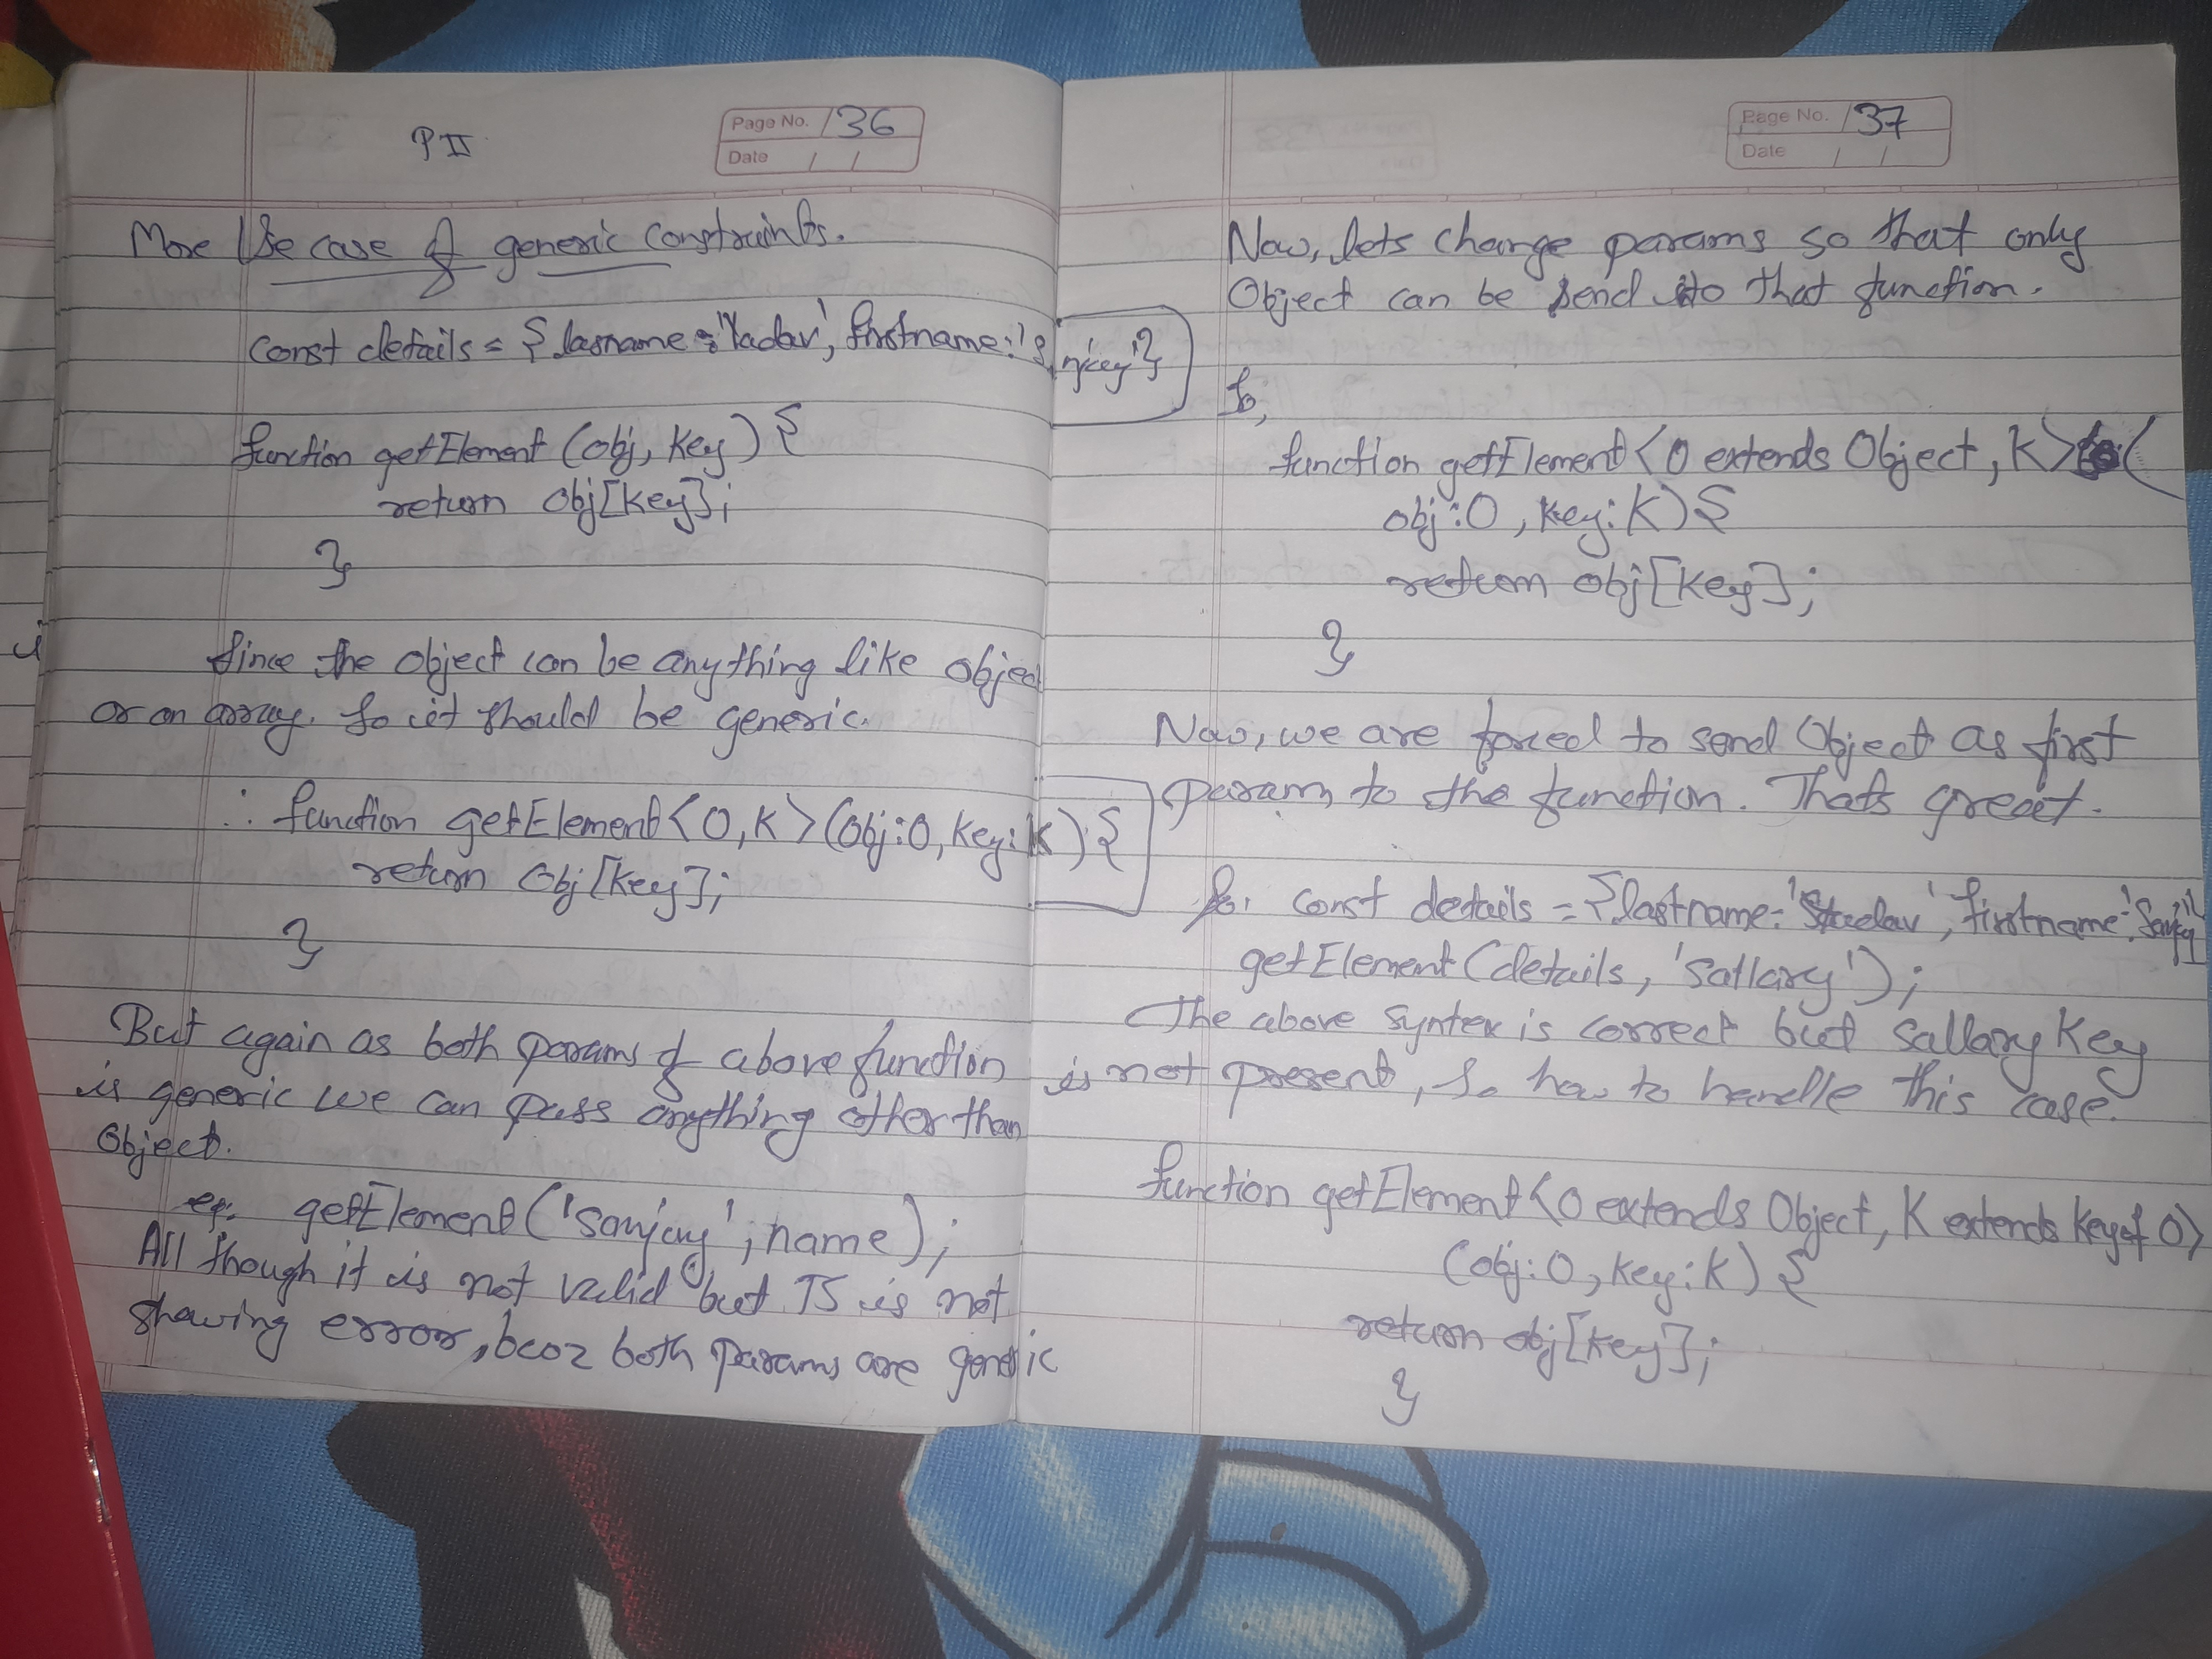 P II
Page No. 136
Date / /
More Use case of generic constraints.
const details = { lasname : 'Yadav', firstname: 'Snjey'}
function getElement (obj, key) {
return obj[key];
}
Since the object can be anything like objec
or an array. So it should be generic.
∴ function getElement<O,K>(obj:O, key:K) {
return obj[key];
}
But again as both params of above function
is generic we can pass anything other than
Object.
eg. getElement('sanjay', name);
All though it is not valid but TS is not
showing error, bcoz both params are generic
Page No. 137
Date / /
Now, lets change params so that only
Object can be send to that function.
So,
function getElement<O extends Object, K>(
obj:O, key:K){
return obj[key];
}
Now, we are forced to send Object as first
param, to the function. Thats great.
So. const details = {lastname: , firstname: 'Sanjey'}
getElement(details, 'sallary');
The above syntex is correct but sallary key
is not present, So how to handle this case.
function getElement<O extends Object, K extends keyof O>
(obj:O, key:K) {
return obj[key];
}